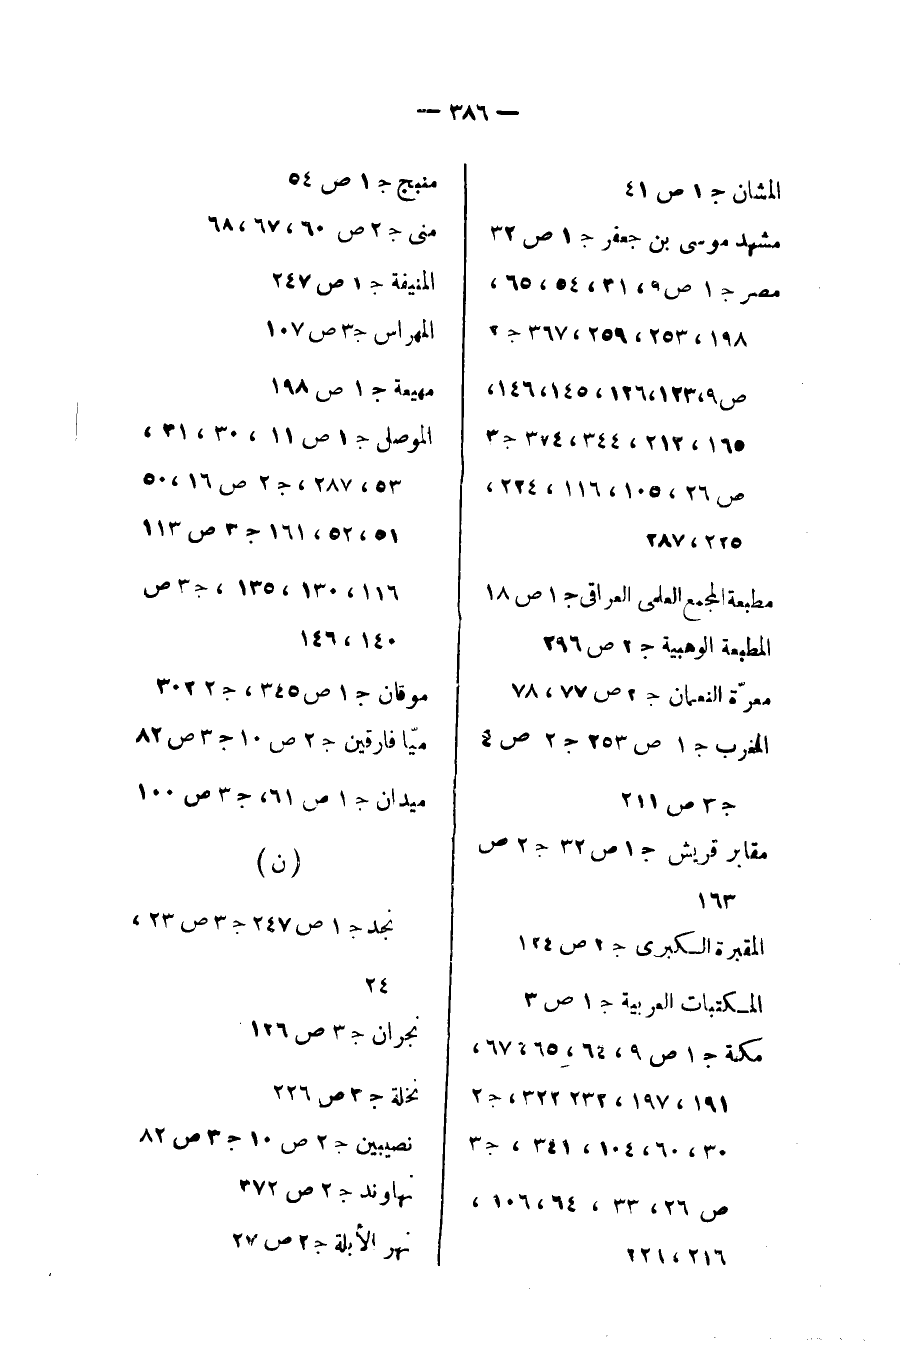 — ٣٨٦ —
المشان ج ١ ص ٤١
مشهد موسى بن جعفر ج ١ ص ٣٢
مصر ج ١ ص ٩، ٣١، ٥٤، ٦٥،
١٩٨، ٢٥٣، ٢٥٩، ٣٦٧ ج ٢
ص ٩، ١٢٣، ١٢٦، ١٤٥، ١٤٦،
١٦٥، ٢١٢، ٣٤٤، ٣٧٤ ج ٣
ص ٢٦، ١٠٥، ١١٦، ٢٢٤،
٢٢٥، ٢٨٧
مطبعة المجمع العلمى العراقى ج ١ ص ١٨
المطبعة الوهبية ج ٢ ص ٢٩٦
معرّة النعمان ج ٢ ص ٧٧، ٧٨
المغرب ج ١ ص ٢٥٣ ج ٢ ص ٤
ج ٣ ص ٢١١
مقابر قريش ج ١ ص ٣٢ ج ٢ ص
١٦٣
المقبرة الكبرى ج ٢ ص ١٢٤
المكتبات العربية ج ١ ص ٣
مكة ج ١ ص ٩، ٦٤، ٦٥، ٦٧،
١٩١، ١٩٧، ٢٣٢ ٣٢٢، ج ٢
٣٠، ٦٠، ١٠٤، ٣٤١، ج ٣
ص ٢٦، ٣٣، ٦٤، ١٠٦،
٢١٦، ٢٢١
منبج ج ١ ص ٥٤
منى ج ٢ ص ٦٠، ٦٧، ٦٨
المنيفة ج ١ ص ٢٤٧
المهراس ج ٣ ص ١٠٧
مهيعة ج ١ ص ١٩٨
الموصل ج ١ ص ١١، ٣٠، ٣١،
٥٣، ٢٨٧، ج ٢ ص ١٦، ٥٠
٥١، ٥٢، ١٦١ ج ٣ ص ١١٣
١١٦، ١٣٠، ١٣٥، ج ٣ ص
١٤٠، ١٤٦
موقان ج ١ ص ٣٤٥، ج ٢ ٣٠٢
ميّا فارقين ج ٢ ص ١٠ ج ٣ ص ٨٢
ميدان ج ١ ص ٦١، ج ٣ ص ١٠٠
(ن)
نجد ج ١ ص ٢٤٧ ج ٣ ص ٢٣،
٢٤
نجران ج ٣ ص ١٢٦
نخلة ج ٣ ص ٢٢٦
نصيبين ج ٢ ص ١٠ ج ٣ ص ٨٢
نهاوند ج ٢ ص ٣٧٢
نهر الأبلة ج ٢ ص ٢٧